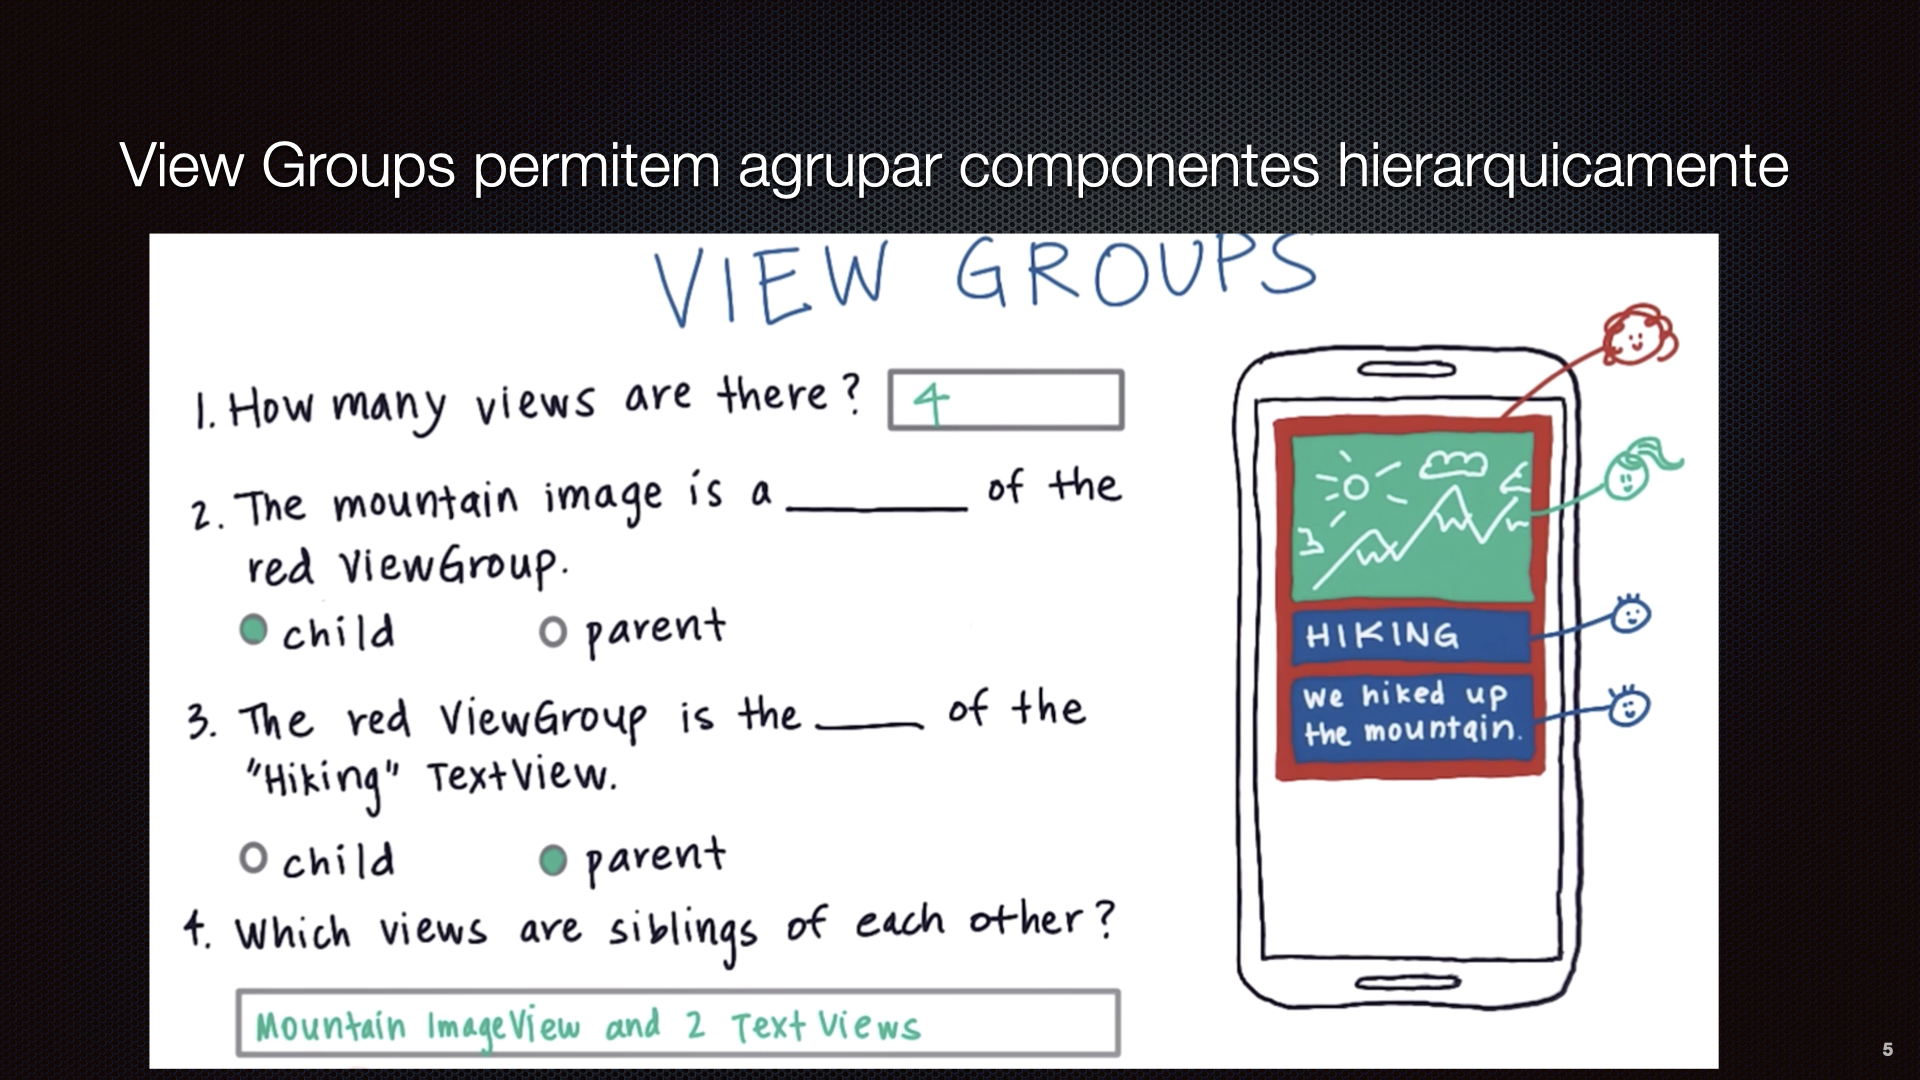 View Groups permitem agrupar componentes hierarquicamente
VIEW GROUPS
1. How many views are there? 4
2. The mountain image is a ________ of the
red ViewGroup.
child parent
3. The red ViewGroup is the _____ of the
"Hiking" TextView.
child parent
4. Which views are siblings of each other?
Mountain ImageView and 2 TextViews
HIKING
we hiked up
the mountain.
5